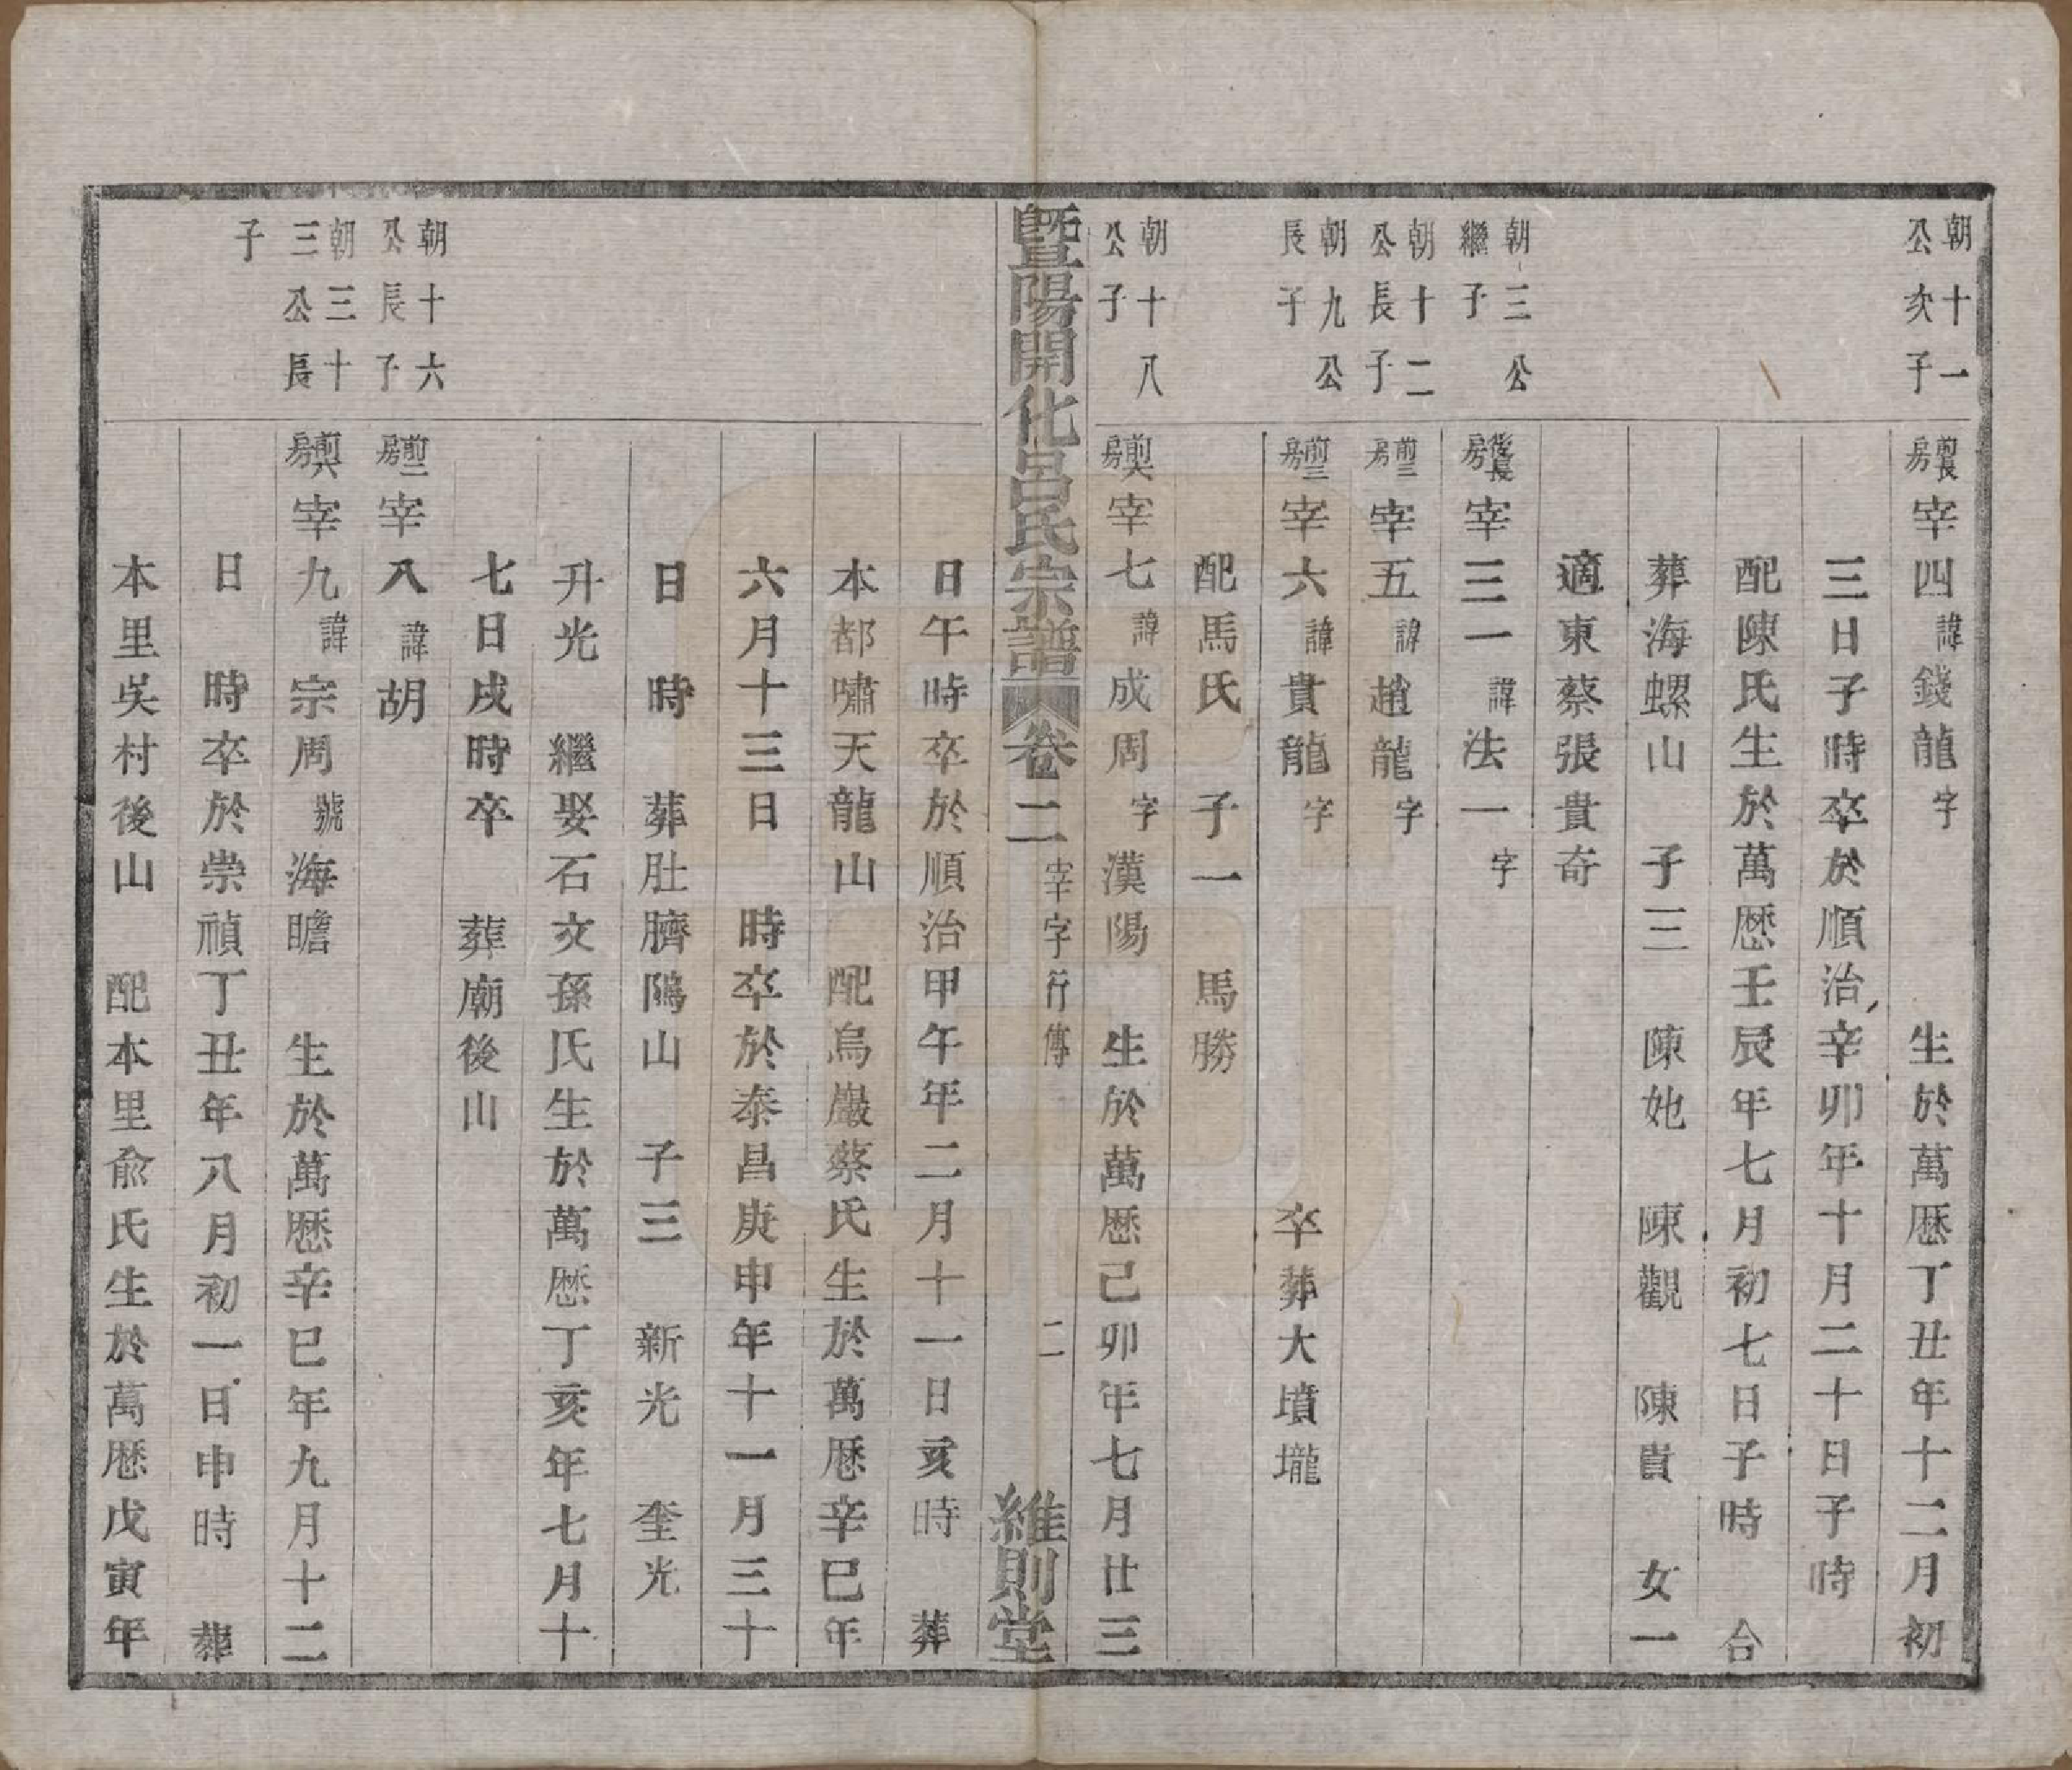 朝十一
公次子
前長房宰四諱錢龍字 生於萬歷丁丑年十二月初
三日子時卒於順治辛卯年十月二十日子時
配陳氏生於萬歷壬辰年七月初七日子時 合
葬海螺山 子三 陳她 陳觀 陳貴 女一
適東蔡張貴奇
朝三公
繼子
後長房宰三一諱法一字
朝十二
公長子
前三房宰五諱趙龍字
朝九公
長子
前三房宰六諱貴龍字 卒葬大墳壠
配馬氏 子一 馬勝
朝十八
公子
前六房宰七諱成周字漢陽 生於萬歷己卯年七月廿三
暨陽開化呂氏宗譜 卷二 宰字行傳 二 維則堂
日午時卒於順治甲午年二月十一日亥時 葬
本都嘯天龍山 配烏巖蔡氏生於萬歷辛巳年
六月十三日 時卒於泰昌庚申年十一月三十
日 時 葬肚臍隖山 子三 新光 奎光
升光 繼娶石文孫氏生於萬歷丁亥年七月十
七日戌時卒 葬廟後山
朝十六
公長子
前二房宰八諱胡
朝三十
三公長
子
前六房宰九諱宗周號海瞻 生於萬歷辛巳年九月十二
日 時卒於崇禎丁丑年八月初一日申時 葬
本里吳村後山 配本里俞氏生於萬歷戊寅年